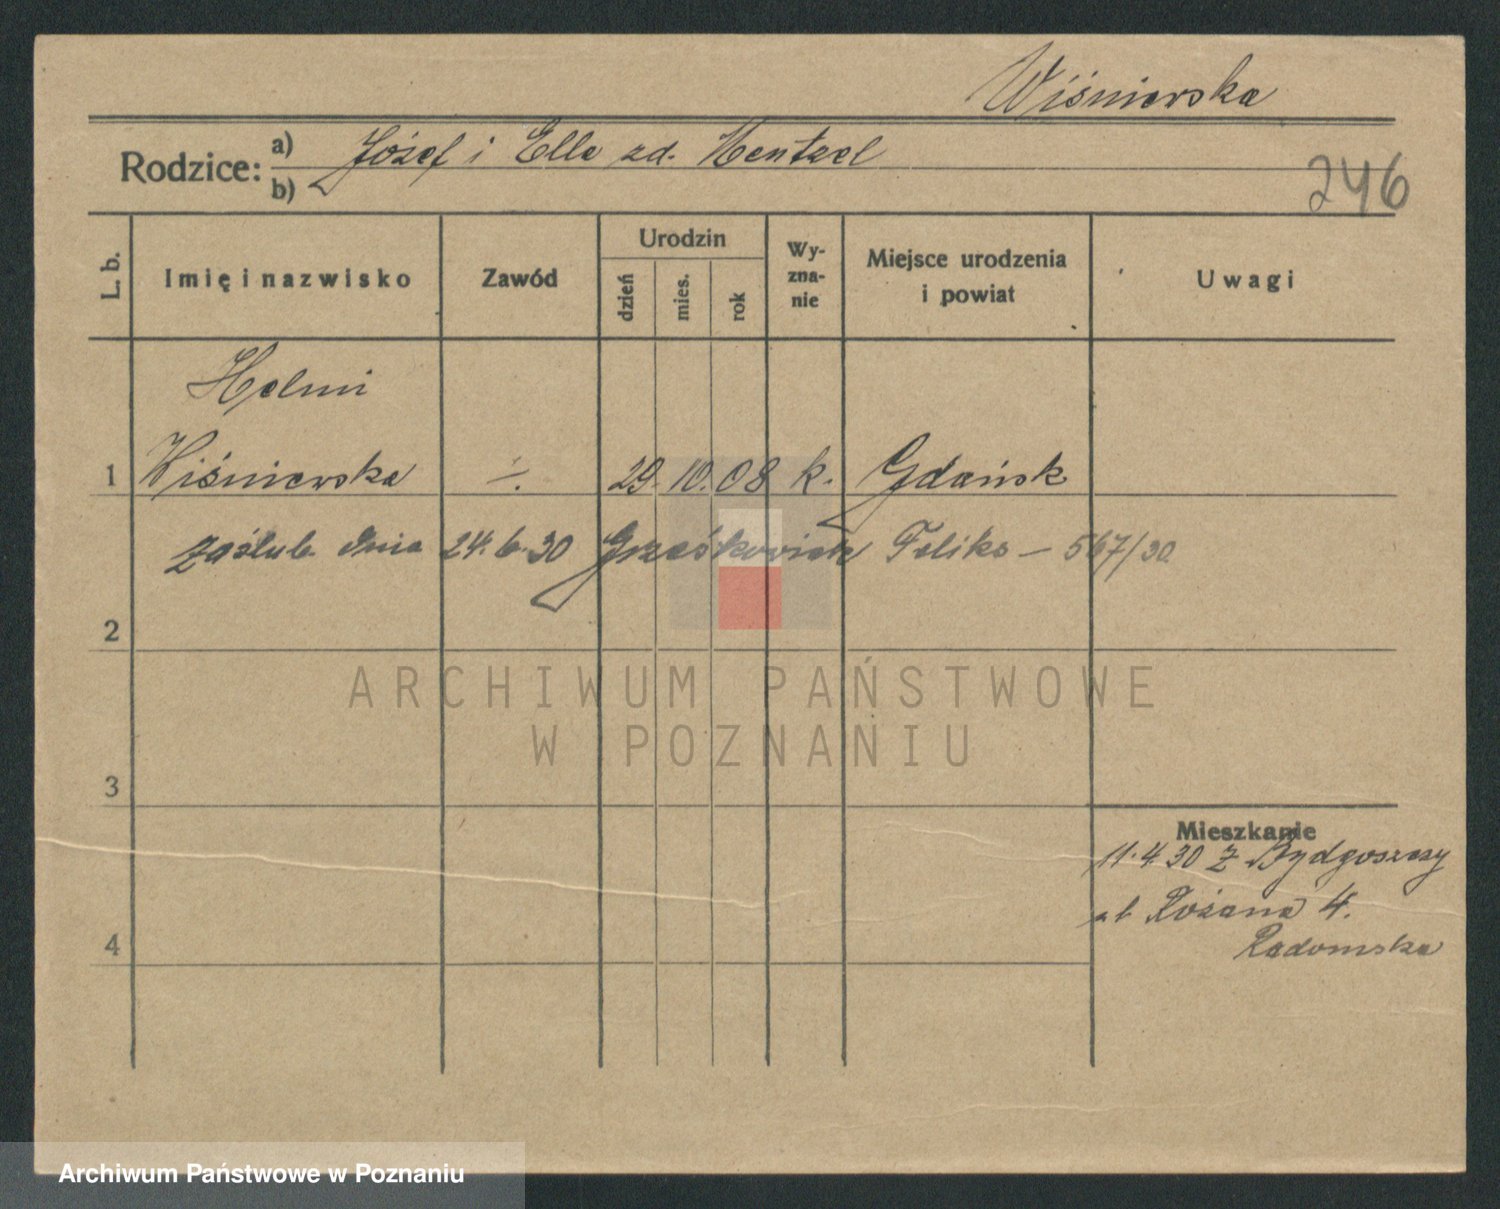 Wiśniewska
Rodzice: a) Józef i Elle zd. Hentzel
b)
246
L. b. Imię i nazwisko Zawód Urodzin dzień mies. rok Wy-zna-nie Miejsce urodzenia i powiat Uwagi
Helmi
1 Wiśniewska ÷. 29. 10. 08 k. Gdańsk
zaślub. dnia 24.6.30 Grześkowiak Feliks — 567/30
2
ARCHIWUM PAŃSTWOWE
W POZNANIU
3
Mieszkanie
11.4.30 z Bydgoszczy
ul Różana 4.
4
Radomska
Archiwum Państwowe w Poznaniu